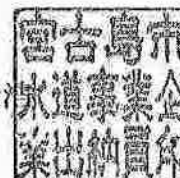 宮古島市
水道事業企
業出納員印